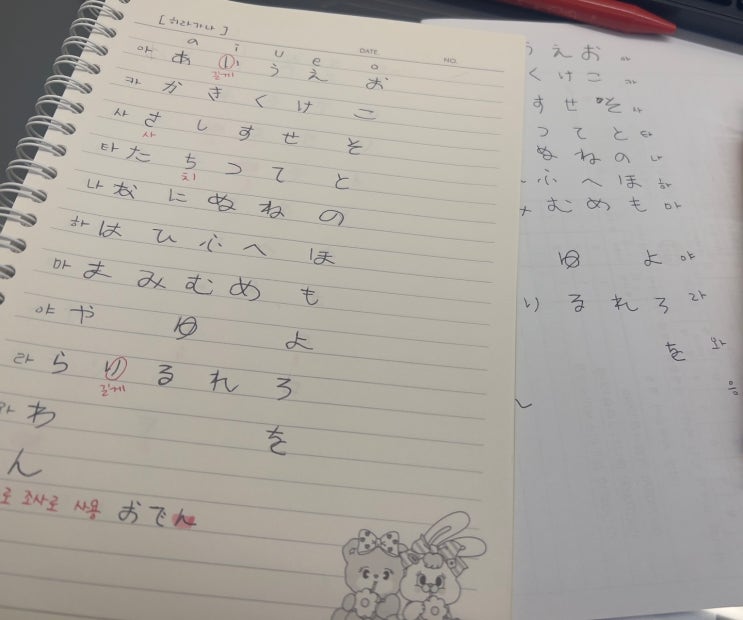 [ 히라가나 ]
a i u e o
DATE. NO.
아 あ い う え お
길게
카 か き く け こ
사 さ し す せ そ
사
타 た ち つ て と
치
나 な に ぬ ね の
하 は ひ ふ へ ほ
마 ま み む め も
야 や ゆ よ
라 ら り る れ ろ
길게
와 わ を
ん
로 조사로 사용 おでん
う え お 아
く け こ 카
す せ そ 사
つ て と 타
ぬ ね の 나
ふ へ ほ 하
む め も 마
ゆ よ 야
り る れ ろ 라
を 와
응